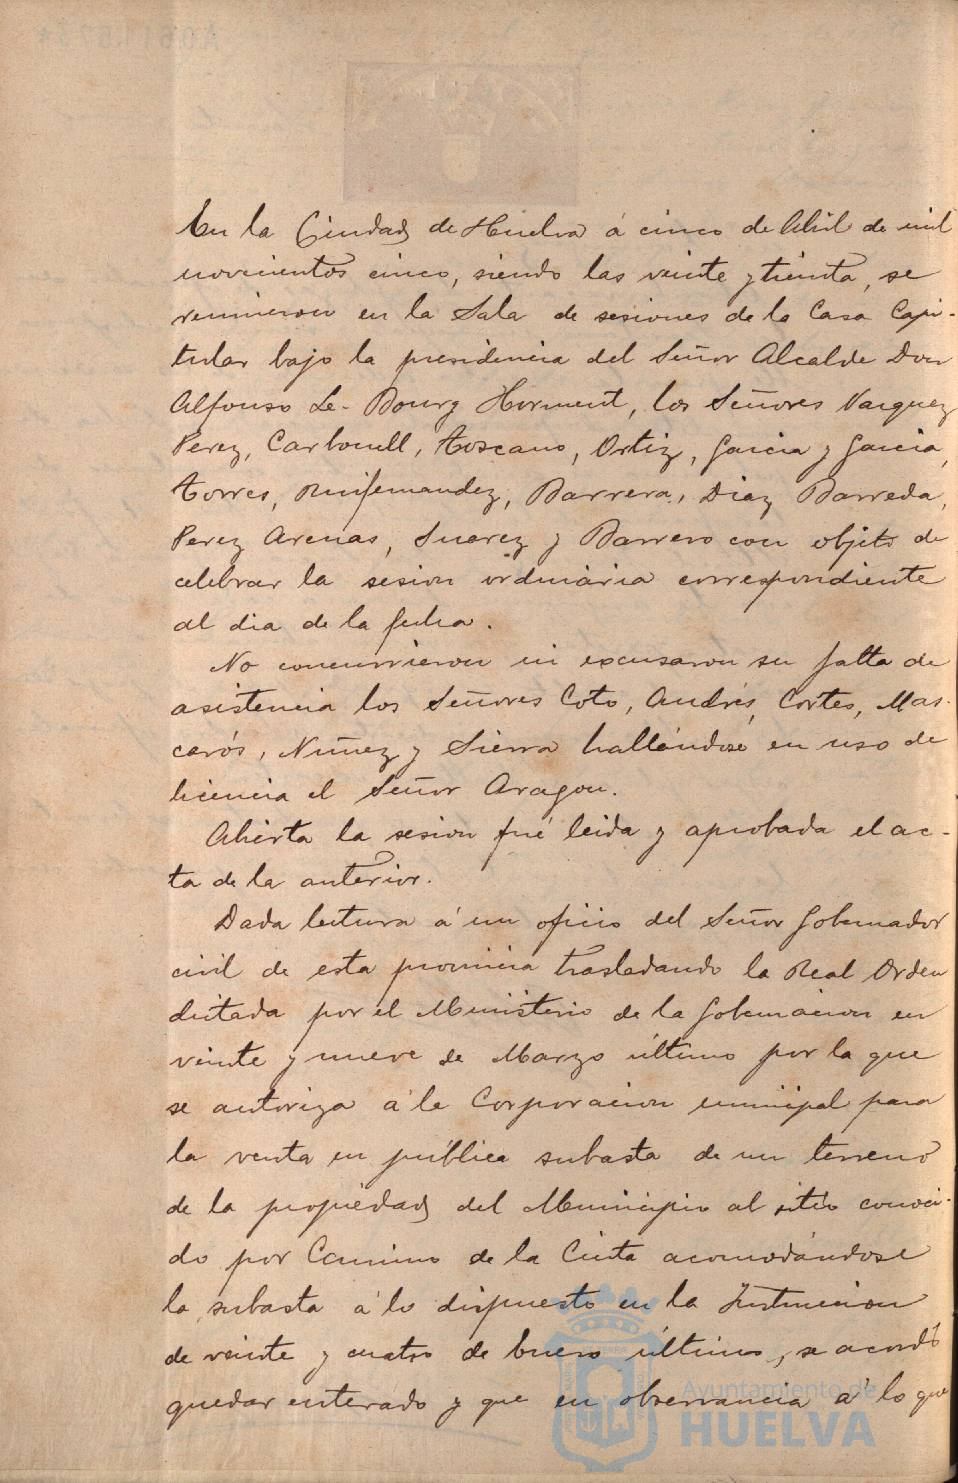 En la Ciudad de Huelva á cinco de Abril de mil
novecientos cinco, siendo las veinte y treinta, se
reunieron en la Sala de sesiones de la Casa Capi-
tular bajo la presidencia del Señor Alcalde Don
Alfonso Le-Bourg Horment, los Señores Vazquez
Perez, Carbonell, Toscano, Ortiz, Garcia y Garcia,
Torres, Ruifernandez, Barrera, Diaz Barreda,
Perez Arenas, Suarez y Barrero con objeto de
celebrar la sesion ordinária correspondiente
al dia de la fecha.
No concurrieron ni excusaron su falta de
asistencia los Señores Coto, Andrés, Cortes, Mas-
carós, Nuñez y Sierra hallándose en uso de
licencia el Señor Aragon.
Abierta la sesion fué leida y aprobada el ac-
ta de la anterior.
Dada lectura á un oficio del Señor Gobernador
civil de esta provincia trasladando la Real Orden
dictada por el Ministerio de la Gobernacion en
veinte y nueve de Marzo último por la que
se autoriza á la Corporacion municipal para
la venta en pública subasta de un terreno
de la propiedad del Municipio al sitio conoci-
do por Camino de la Cinta acomodándose
la subasta á lo dispuesto en la Instruccion
de veinte y cuatro de Enero último, se acordó
quedar enterado y que en observancia á lo que
Ayuntamiento de
HUELVA